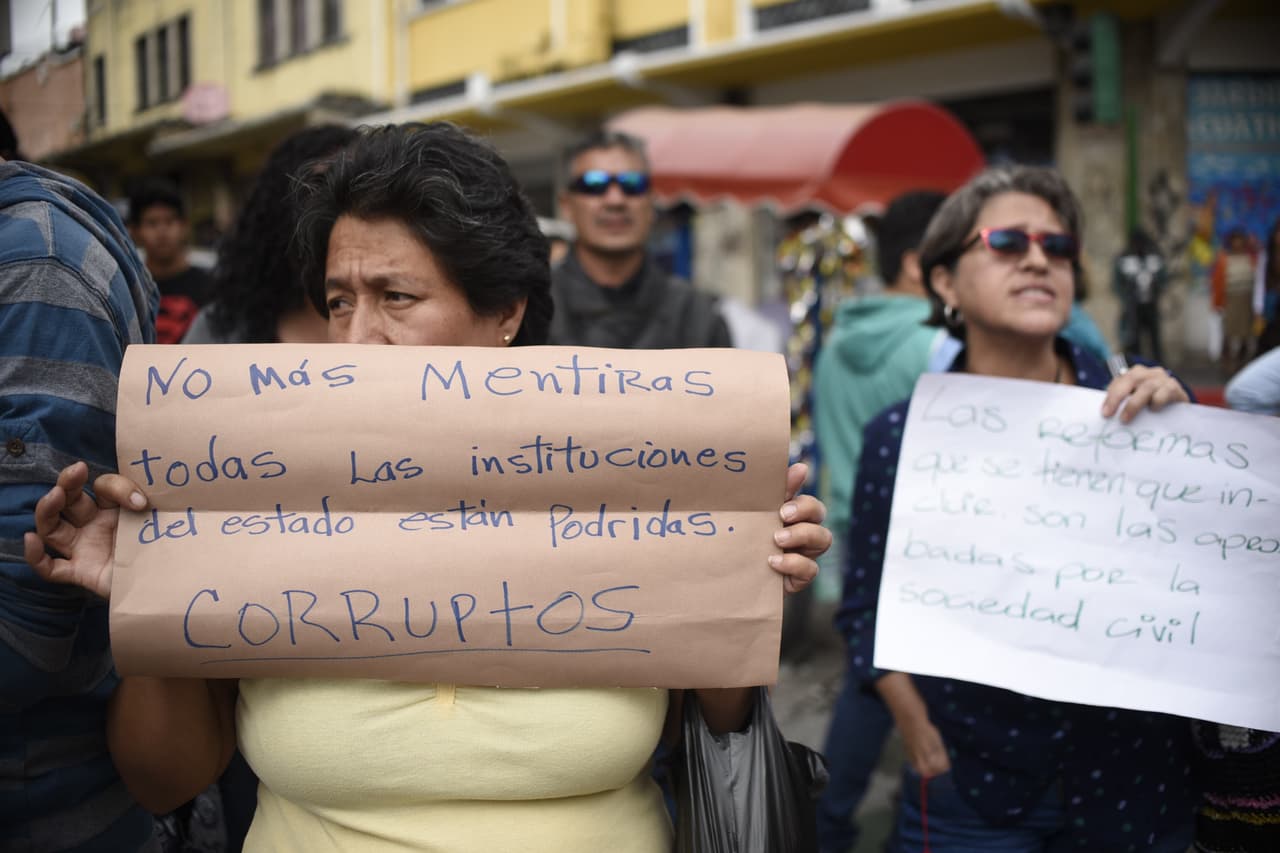 No Más Mentiras
todas Las instituciones
del estado están Podridas.
CORRUPTOS
Las Reformas
que se tienen que in-
cluir son las apro
badas por la
sociedad civil